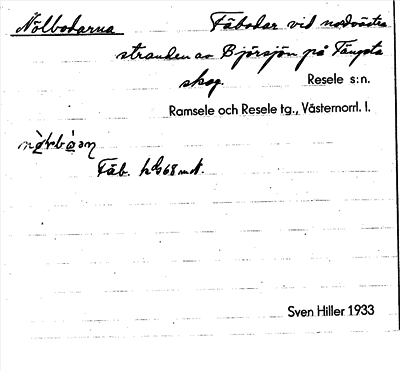 Nölbodarna Fäbodar vid nordvästra
stranden av Björsjön på Tängsta
skog. Resele s:n.
Ramsele och Resele tg., Västernorrl. l.
Fäb.
Sven Hiller 1933